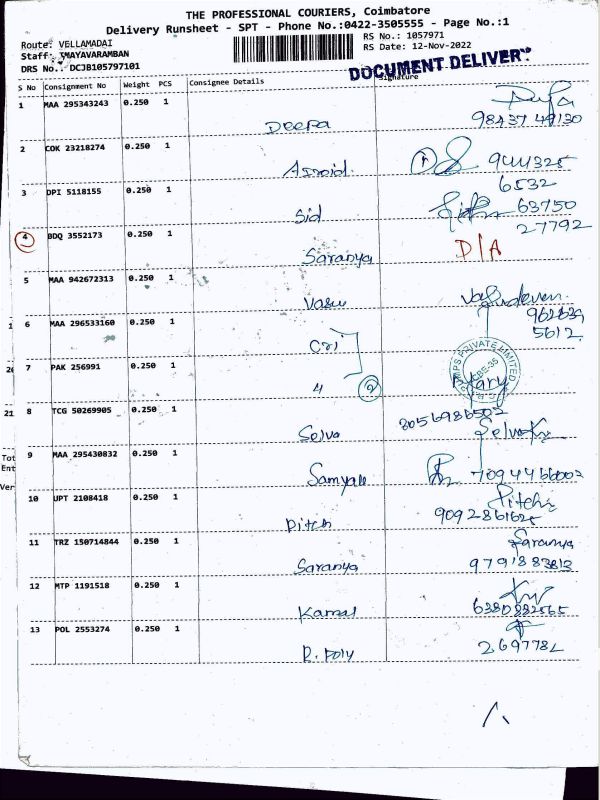 THE PROFESSIONAL COURIERS, Coimbatore
Delivery Runsheet - SPT - Phone No.:0422-3505555 - Page No.:1
Route: VELLAMADAI
RS No.: 1057971
Staff: MAYAVARAMBAN
RS Date: 12-Nov-2022
DRS No.: DCJB105797101
DOCUMENT DELIVER
S No Consignment No Weight PCS Consignee Details Signature
1 MAA 295343243 0.250 1
Deepa 98437 49130
2 COK 23218274 0.250 1
Asroid 9444325
6532
3 DPI 5118155 0.250 1
Sid 63750
27792
4 BDQ 3552173 0.250 1
Saranya D/A
5 MAA 942672313 0.250 1
Vasu Vasudevan
5612
6 MAA 296533160 0.250 1
cri
7 PAK 256991 0.250 1
4 2
PUMPS PRIVATE LIMITED
CBE-35
8 TCG 50269905 0.250 1
Selva 8056986502
Selva
9 MAA 295430832 0.250 1
7094466002
10 UPT 2108418 0.250 1
Pitch
Pitch 9092861625
11 TRZ 150714844 0.250 1
Saranya
Saranya 9791883813
12 MTP 1191518 0.250 1
Kamal 6380882565
13 POL 2553274 0.250 1
R. Poly 2697782
1
20
21
Tot
Ent
Ver